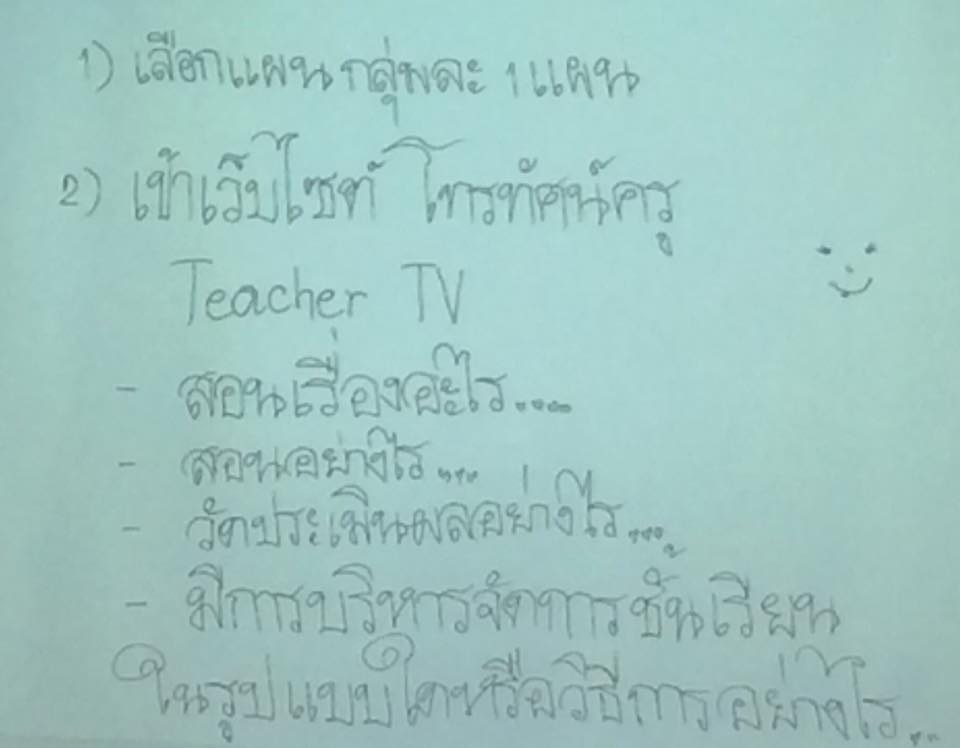 1) เลือกแผน กลุ่มละ 1 แผน
2) เข้าเว็บไซท์ โทรทัศน์ครู
Teacher TV
- สอนเรื่องอะไร....
- สอนอย่างไร....
- วัดประเมินผลอย่างไร....
- มีการบริหารจัดการชั้นเรียน
ในรูปแบบใดหรือวิธีการอย่างไร...